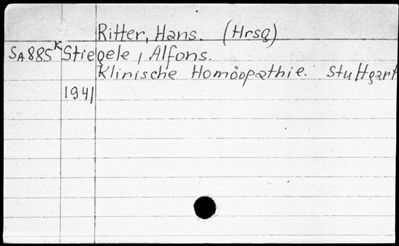 Ritter, Hans. (Hrsg)
SA885K Stiegele, Alfons.
Klinische Homöopathie. Stuttgart
1941